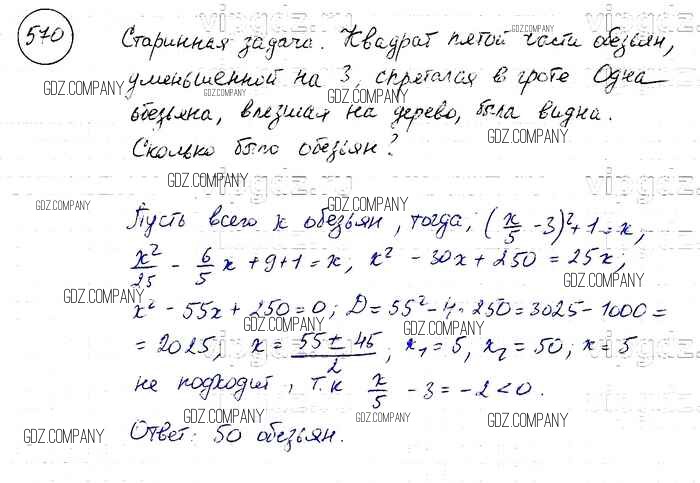 570
Старинная задача. Квадрат пятой части обезьян,
уменьшенной на 3, спрятался в гроте Одна
обезьяна, влезшая на дерево, была видна.
Сколько было обезьян?
Пусть всего x обезьян, тогда, (x/5 - 3)² + 1 = x,
x²/25 - 6/5 x + 9 + 1 = x; x² - 30x + 250 = 25x;
x² - 55x + 250 = 0; D = 55² - 4 · 250 = 3025 - 1000 =
= 2025; x = (55 ± 45)/2; x₁ = 5, x₂ = 50; x = 5
не подходит, т.к x/5 - 3 = -2 < 0.
Ответ: 50 обезьян.
GDZ.COMPANY